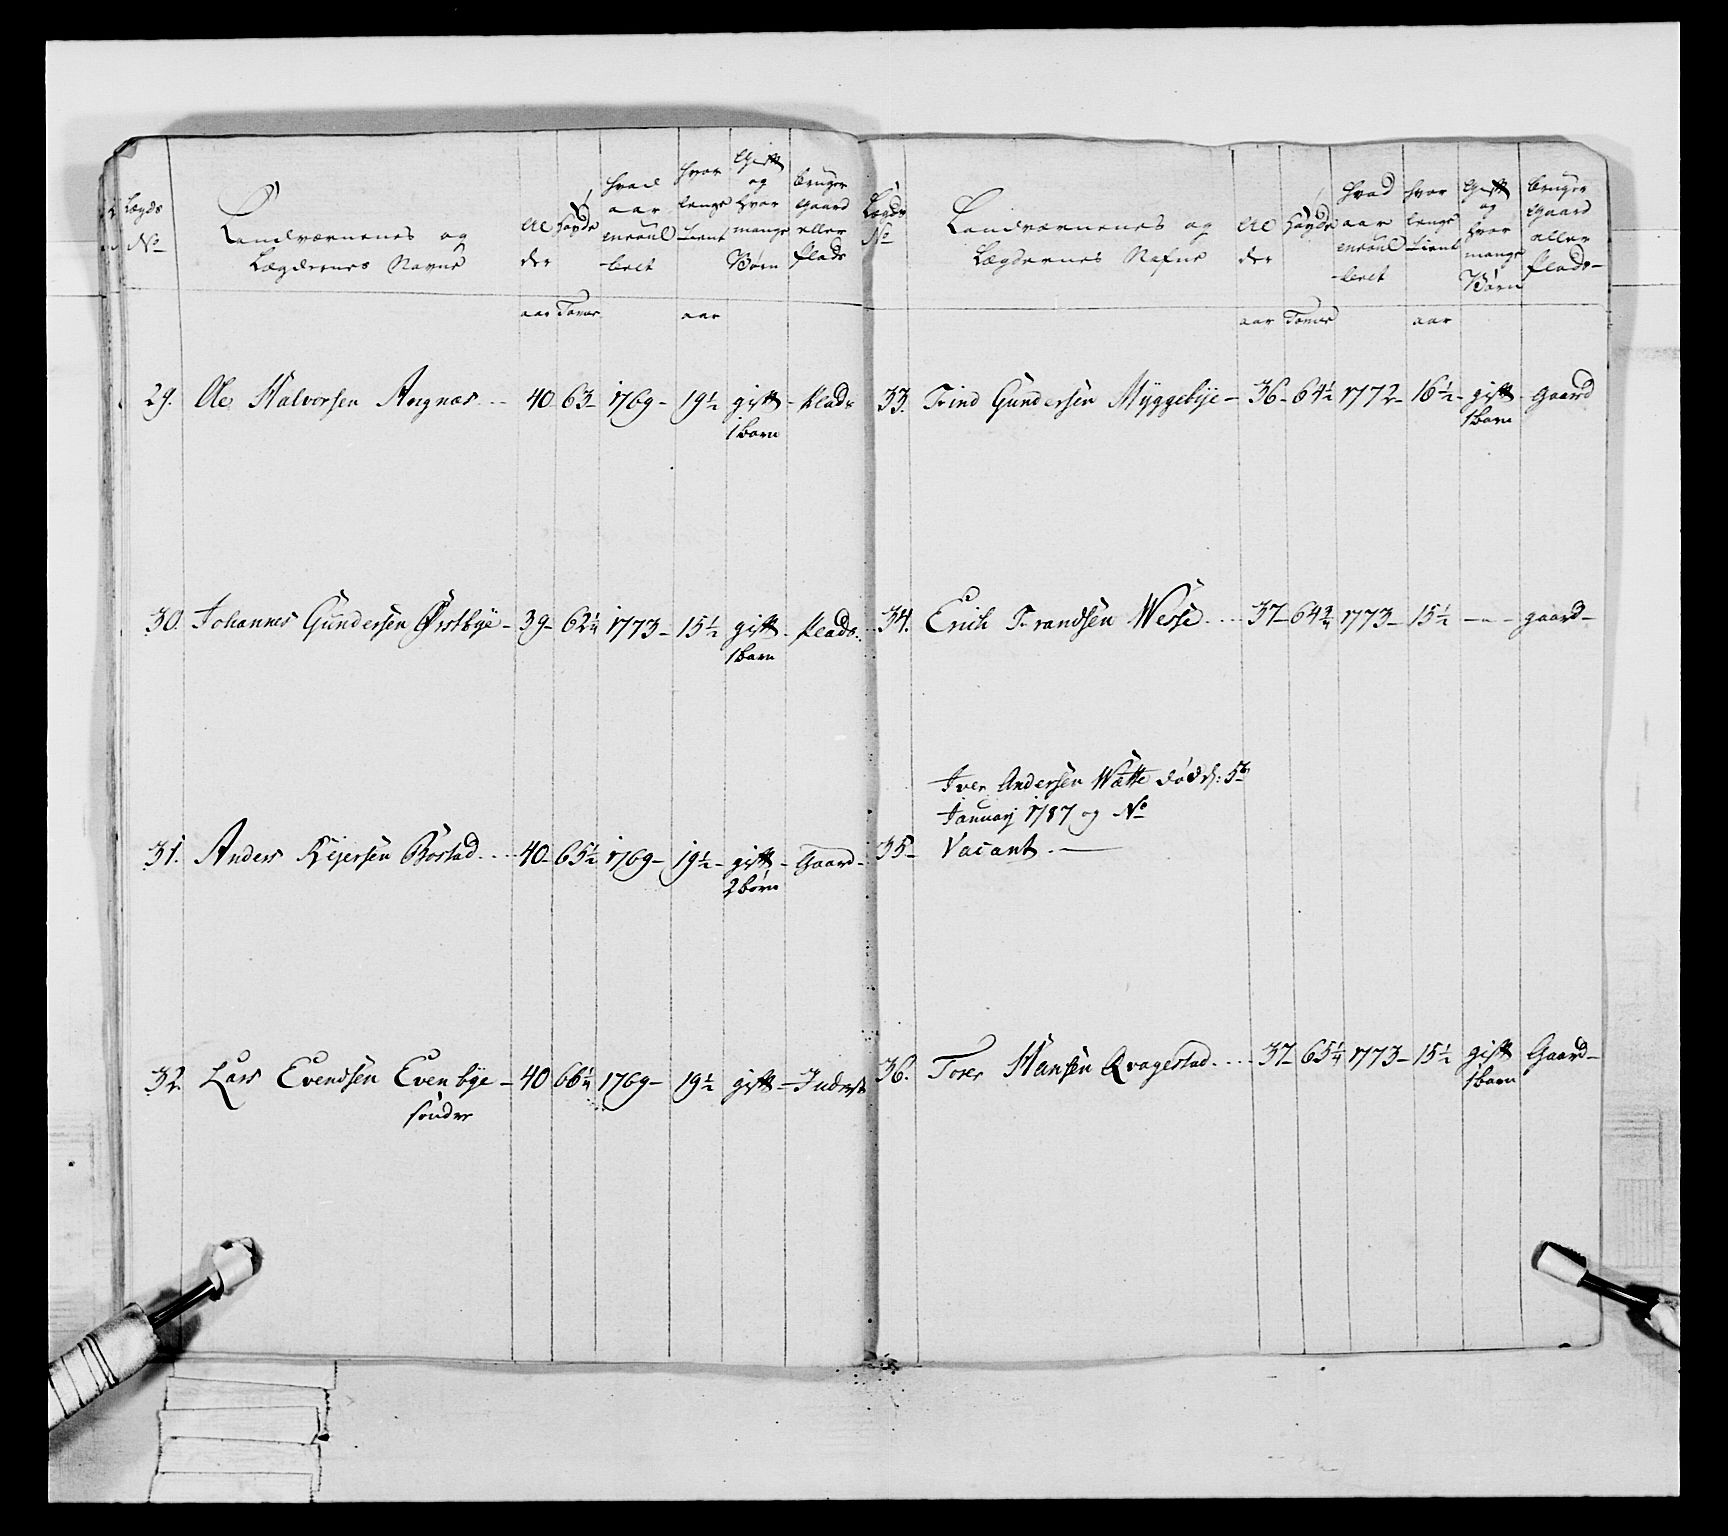 Lægds
No
Landværnenes og
Lægdernes Navne
Al
der
aar
Høyde
Tomer
hvad
aar
enroul
-leret
hvor
lenge
tient
aar
Gift
og
hvor
mange
Børn
bruger
Gaard
eller
Plads
29. Ole Halvorsen Augnæs - 40 63 - 1769 - 19½ gift - Plads
1 barn
30. Johannes Gundersen Østbye - 39 - 62¼ 1773 - 15½ gift - Plads.
1 barn
31. Anders Rejersen Bostad .... 40 - 65½ 1769 - 19½ - gift - Gaard -
2 børn
32. Lars Evensen Evenbye - 40 66¼ 1769 - 19½ gift - Inderst
søndre
Lægds
No
Landværnenes og
Lægdernes Nafne
Al
der
aar
Høyde
Tomer
Hvad
aar
enroul
-leret
hvor
lenge
tient
aar
Gift
og
hvor
mange
Børn
bruger
Gaard
eller
Plads -
33. Trind Gundersen Myggebye - 36 - 64½ 1772 - 16½ - gift - Gaard
1 barn
34. Erich Frandsen Wesse .... 37 - 64¾ 1773 - 15½ - „ - gaard -
Iver Andersen Wætte død d: 5te
Januarj 1787 og No
35 - Vacant. -
36. Tores Hansen Qvagestad .... 37 - 65¼ 1773 - 15½ gift Gaard -
1 barn